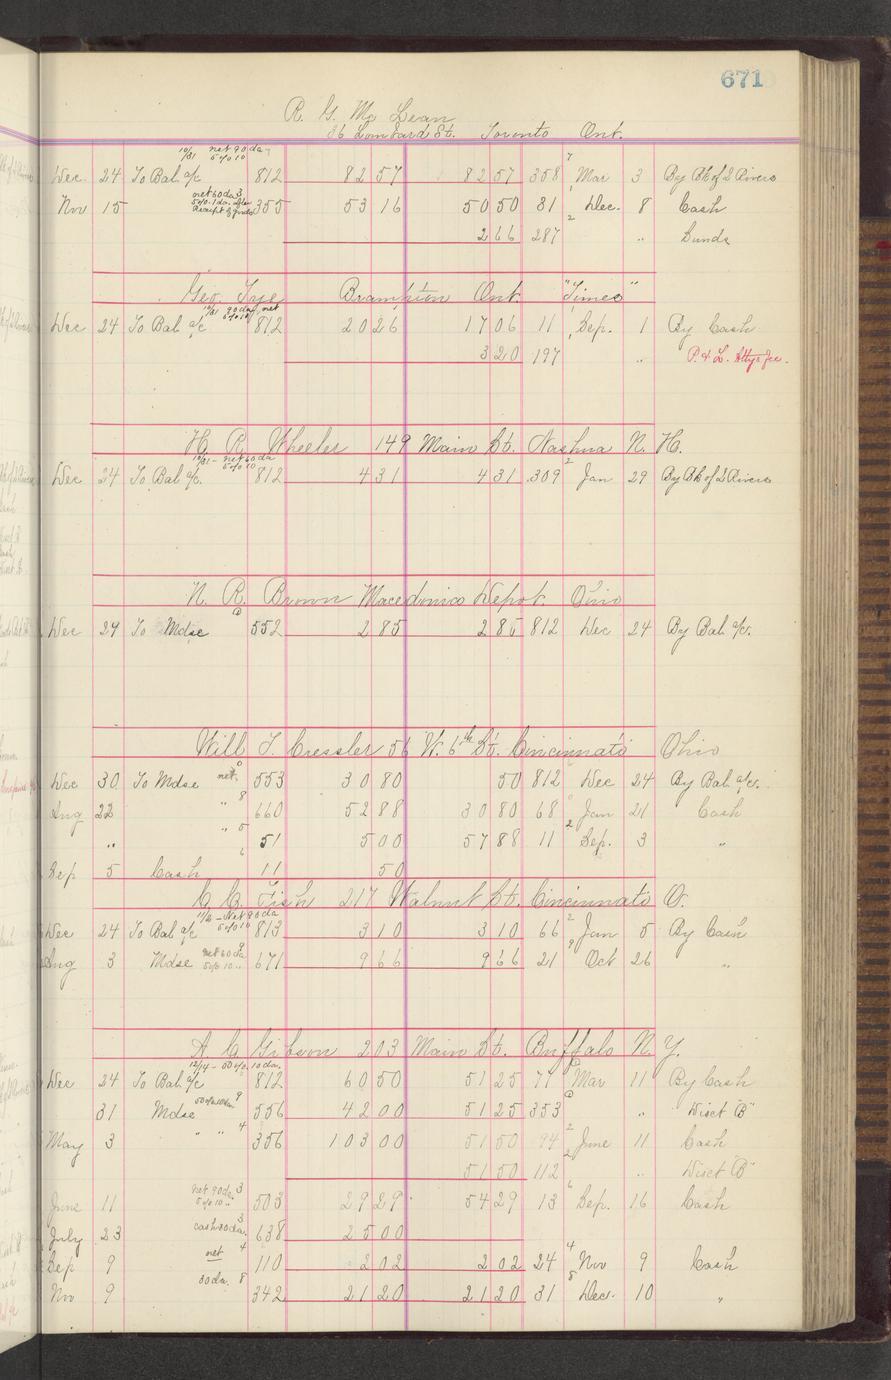 671
R. G. Mc Lean
26 Lombard St. Toronto Ont.
10/31 net 90 da 7
5% 10
Dec 24 To Bal a/c 812 82 57 82 57 358 Mar 3 By Bk of 2 Rivers
net 60 da 3
Nov 15 355 53 16 50 50 81 Dec. 8 Cash
Receipt of goods 2
2 66 287 " Sunds
Geo. Tye Brampton Ont "Times"
10/31 90 da net
5% 10
Dec 24 To Bal a/c 812 20 26 17 06 11 Sep. 1 By Cash
3 20 197 " P. & L. Attys fee.
H. R. Wheeler 149 Main St. Nashua N. H.
10/31 - net 60 da
5% 10 2
Dec 24 To Bal a/c. 812 4 31 4 31 309 Jan 29 By Bk of 2 Rivers
N. R. Brown Macedonia Depot. Ohio
Dec 24 To Mdse 552 2 85 2 85 812 Dec 24 By Bal a/c.
Will T. Cressler 56 W. 6th St. Cincinnati Ohio
Dec 30 To Mdse net. 553 30 80 50 812 Dec 24 By Bal a/c.
Aug 22 " 8 660 52 88 30 80 68 Jan 21 Cash
" " 5 51 5 00 57 88 11 2 Sep. 3 "
Sep 5 Cash 6 11 50
C. C. Fish 217 Walnut St. Cincinnati O.
Net 90 da
5% 10 2
Dec 24 To Bal a/c 813 3 10 3 10 66 Jan 5 By Cash
Aug 3 Mdse net 60 da 9 671 9 66 9 66 21 9 Oct 26 "
5% 10 "
A C Gibson 203 Main St. Buffalo N. Y.
12/14 - 50%. 10 da.
Dec 24 To Bal a/c 812 60 50 51 25 77 Mar 11 By Cash
31 Mdse 50% 10 da. 9 556 42 00 51 25 353 " Disct "B"
May 3 " " 4 356 103 00 51 50 94 2 June 11 Cash
51 50 112 2 " Disct "B"
net 90 da. 3 6
June 11 5% 10 " 503 29 29 54 29 13 Sep. 16 Cash
July 23 cash 30 da. 3 638 25 00
Sep 9 net 4 110 2 02 2 02 24 4 Nov 9 Cash
Nov 9 30 da. 8 342 21 20 21 20 31 8 Dec. 10 "